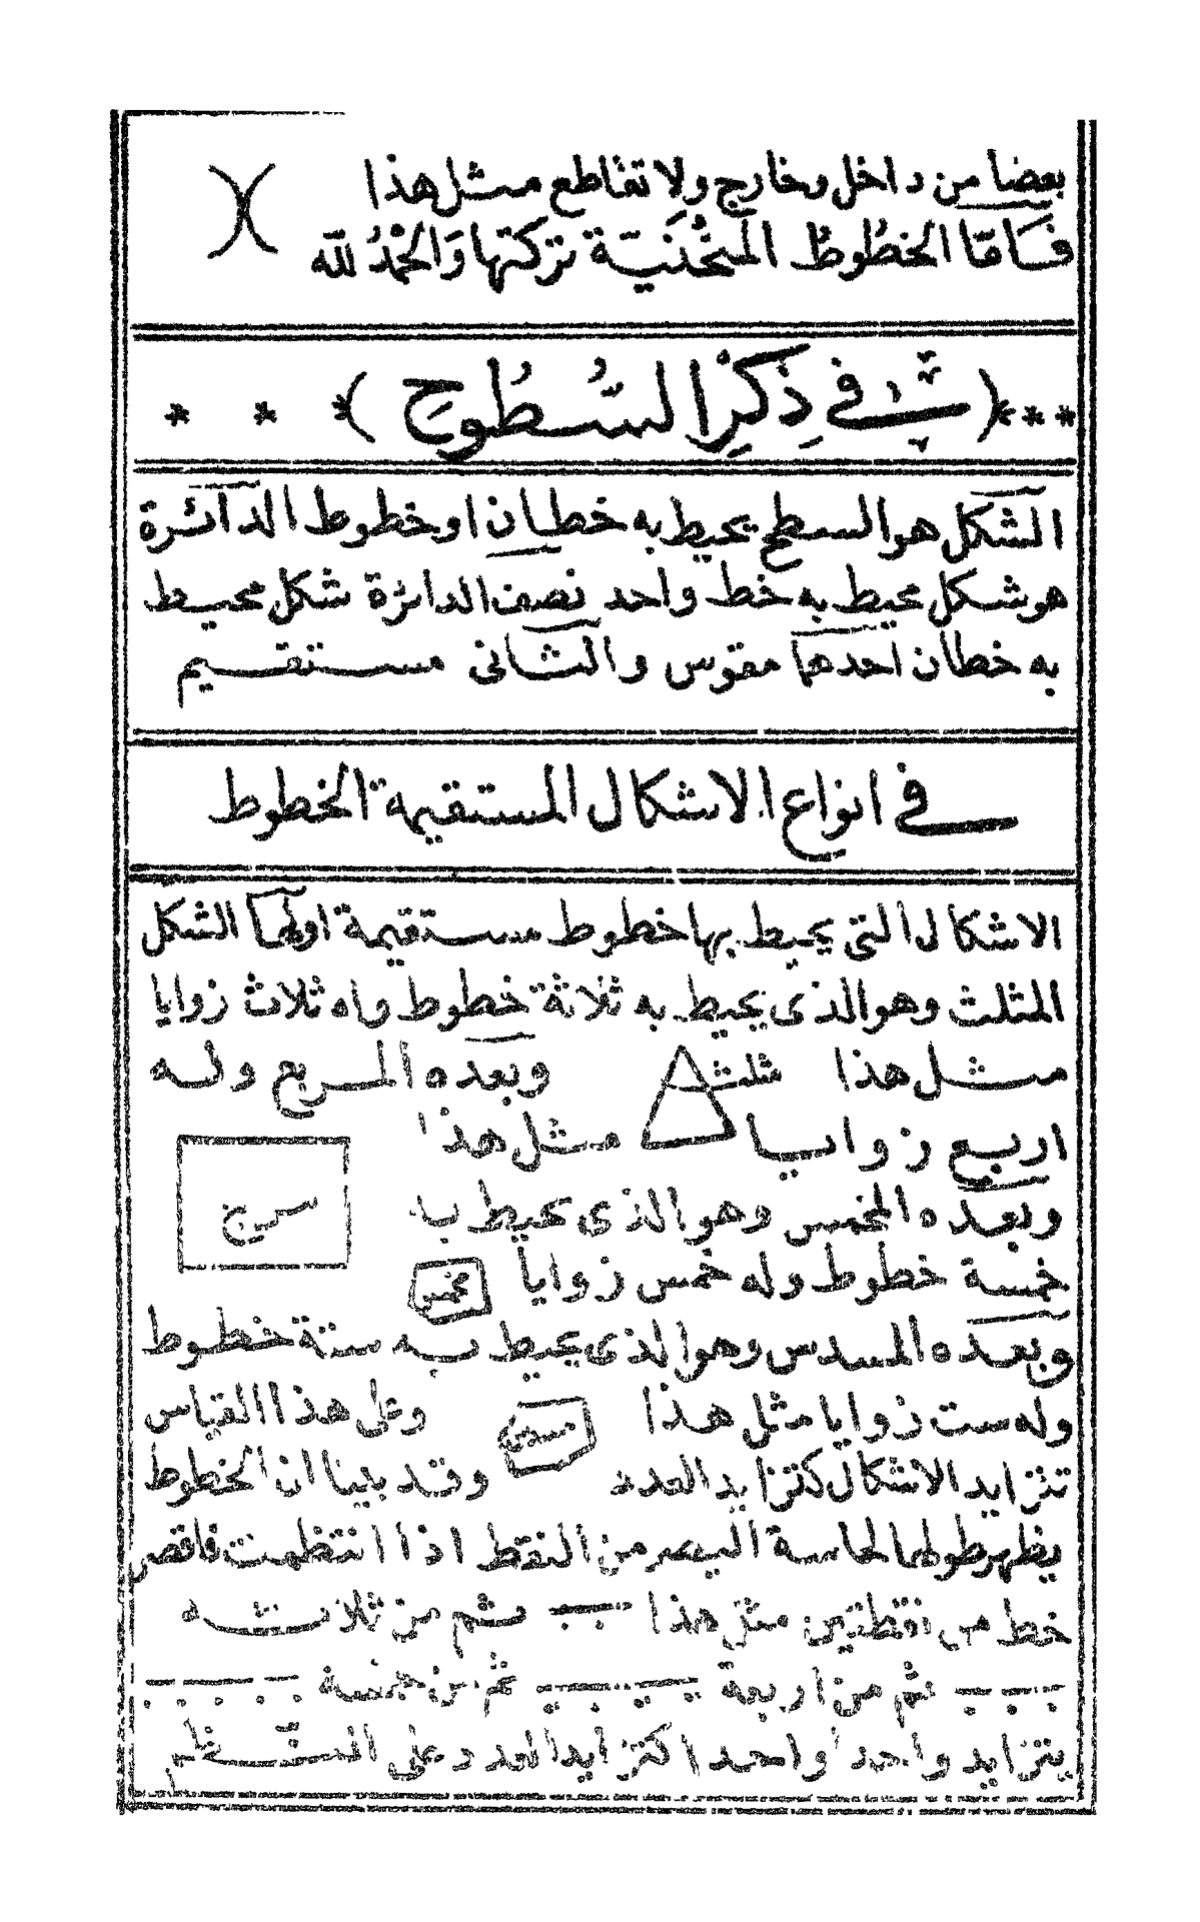 بعضا من داخل وخارج ولا تقاطع مثل هذا
فَاَمَّا الخطُوطُ المنُحَنيَّة تركتها وَالحَمْدُ لله
*** ( في ذِكرِ السُّطُوحِ ) * * *
الشكل هو السطح يحيط به خطان او خطوط الدائرة
هو شكل محيط به خط واحد نصف الدائرة شكل محيط
به خطان احدهما مقوس والثانى مستقيم
في انواع الاشكال المستقيمة الخطوط
الاشكال التى يحيط بها خطوط مستقيمة اولها الشكل
المثلث وهو الذى يحيط به ثلاثة خطوط وله ثلاث زوايا
مثل هذا مثلث وبعده المربع وله
اربع زوايا مثل هذا
مربع
وبعده المخمس وهو الذى يحيط به
خمسة خطوط وله خمس زوايا مخمس
وبعده المسدس وهو الذى يحيط به ستة خطوط
وله ست زوايا مثل هذا مسدس وعلى هذا القياس
تتزايد الاشكال كتزايد العدد وقد بينا ان الخطوط
يظهر طولها لحاسة البصر من النقط اذا انتظمت فاقصر
خط من نقطتين مثل هذا ثم من ثلاثه
ثم من اربعة ثم من خمسة
يتزايد واحدا واحدا كتزايد العدد على النظم